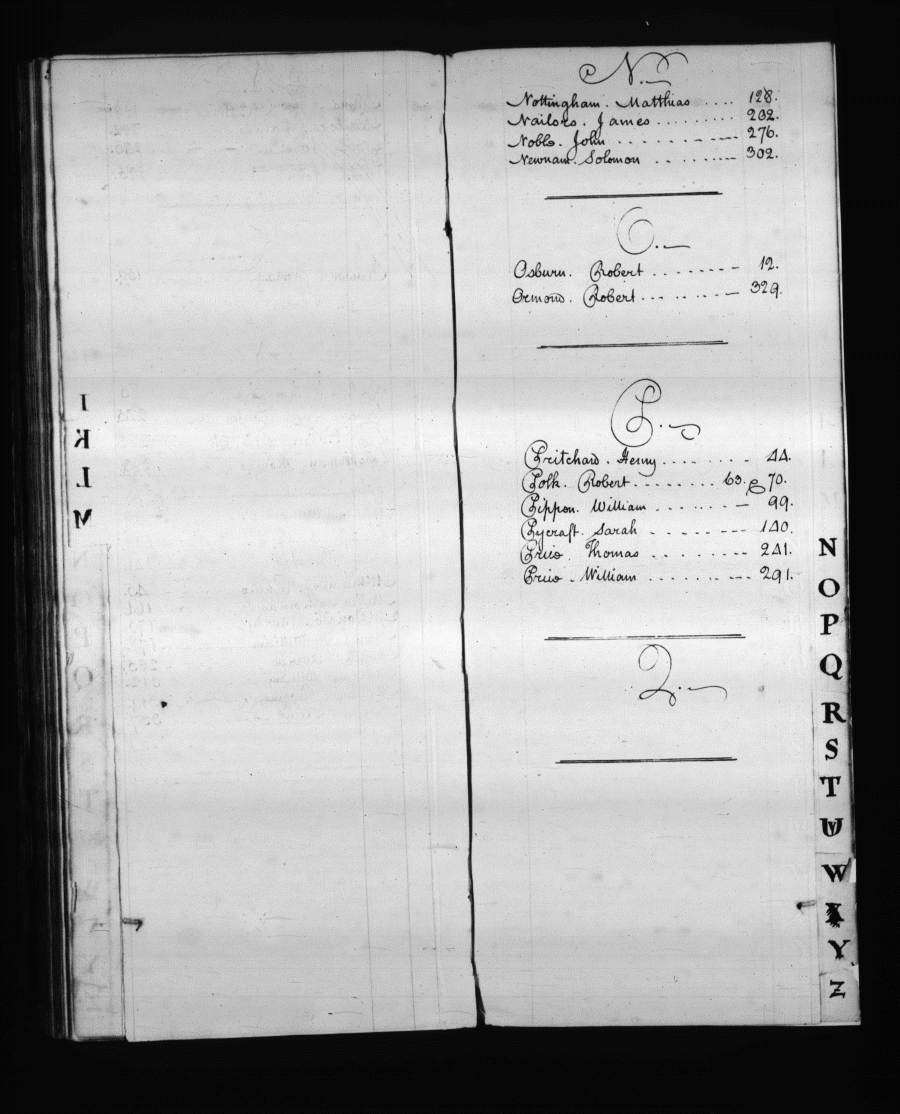 I
K
L
M
N.
Nottingham. Matthias .... 128.
Nailors. James ........ 202.
Noble. John ........ 276.
Newnam. Solomon ........ 302.
O.
Osburn. Robert ........ 12.
Ormond. Robert ........ 329.
P.
Pritchard. Henry ........ 44.
Polk. Robert ........ 63. & 70.
Pippen. William ........ 99.
Pycraft. Sarah ........ 140.
Price. Thomas ........ 241.
Price. William ........ 291.
Q.
N
O
P
Q
R
S
T
U
W
X
Y
Z